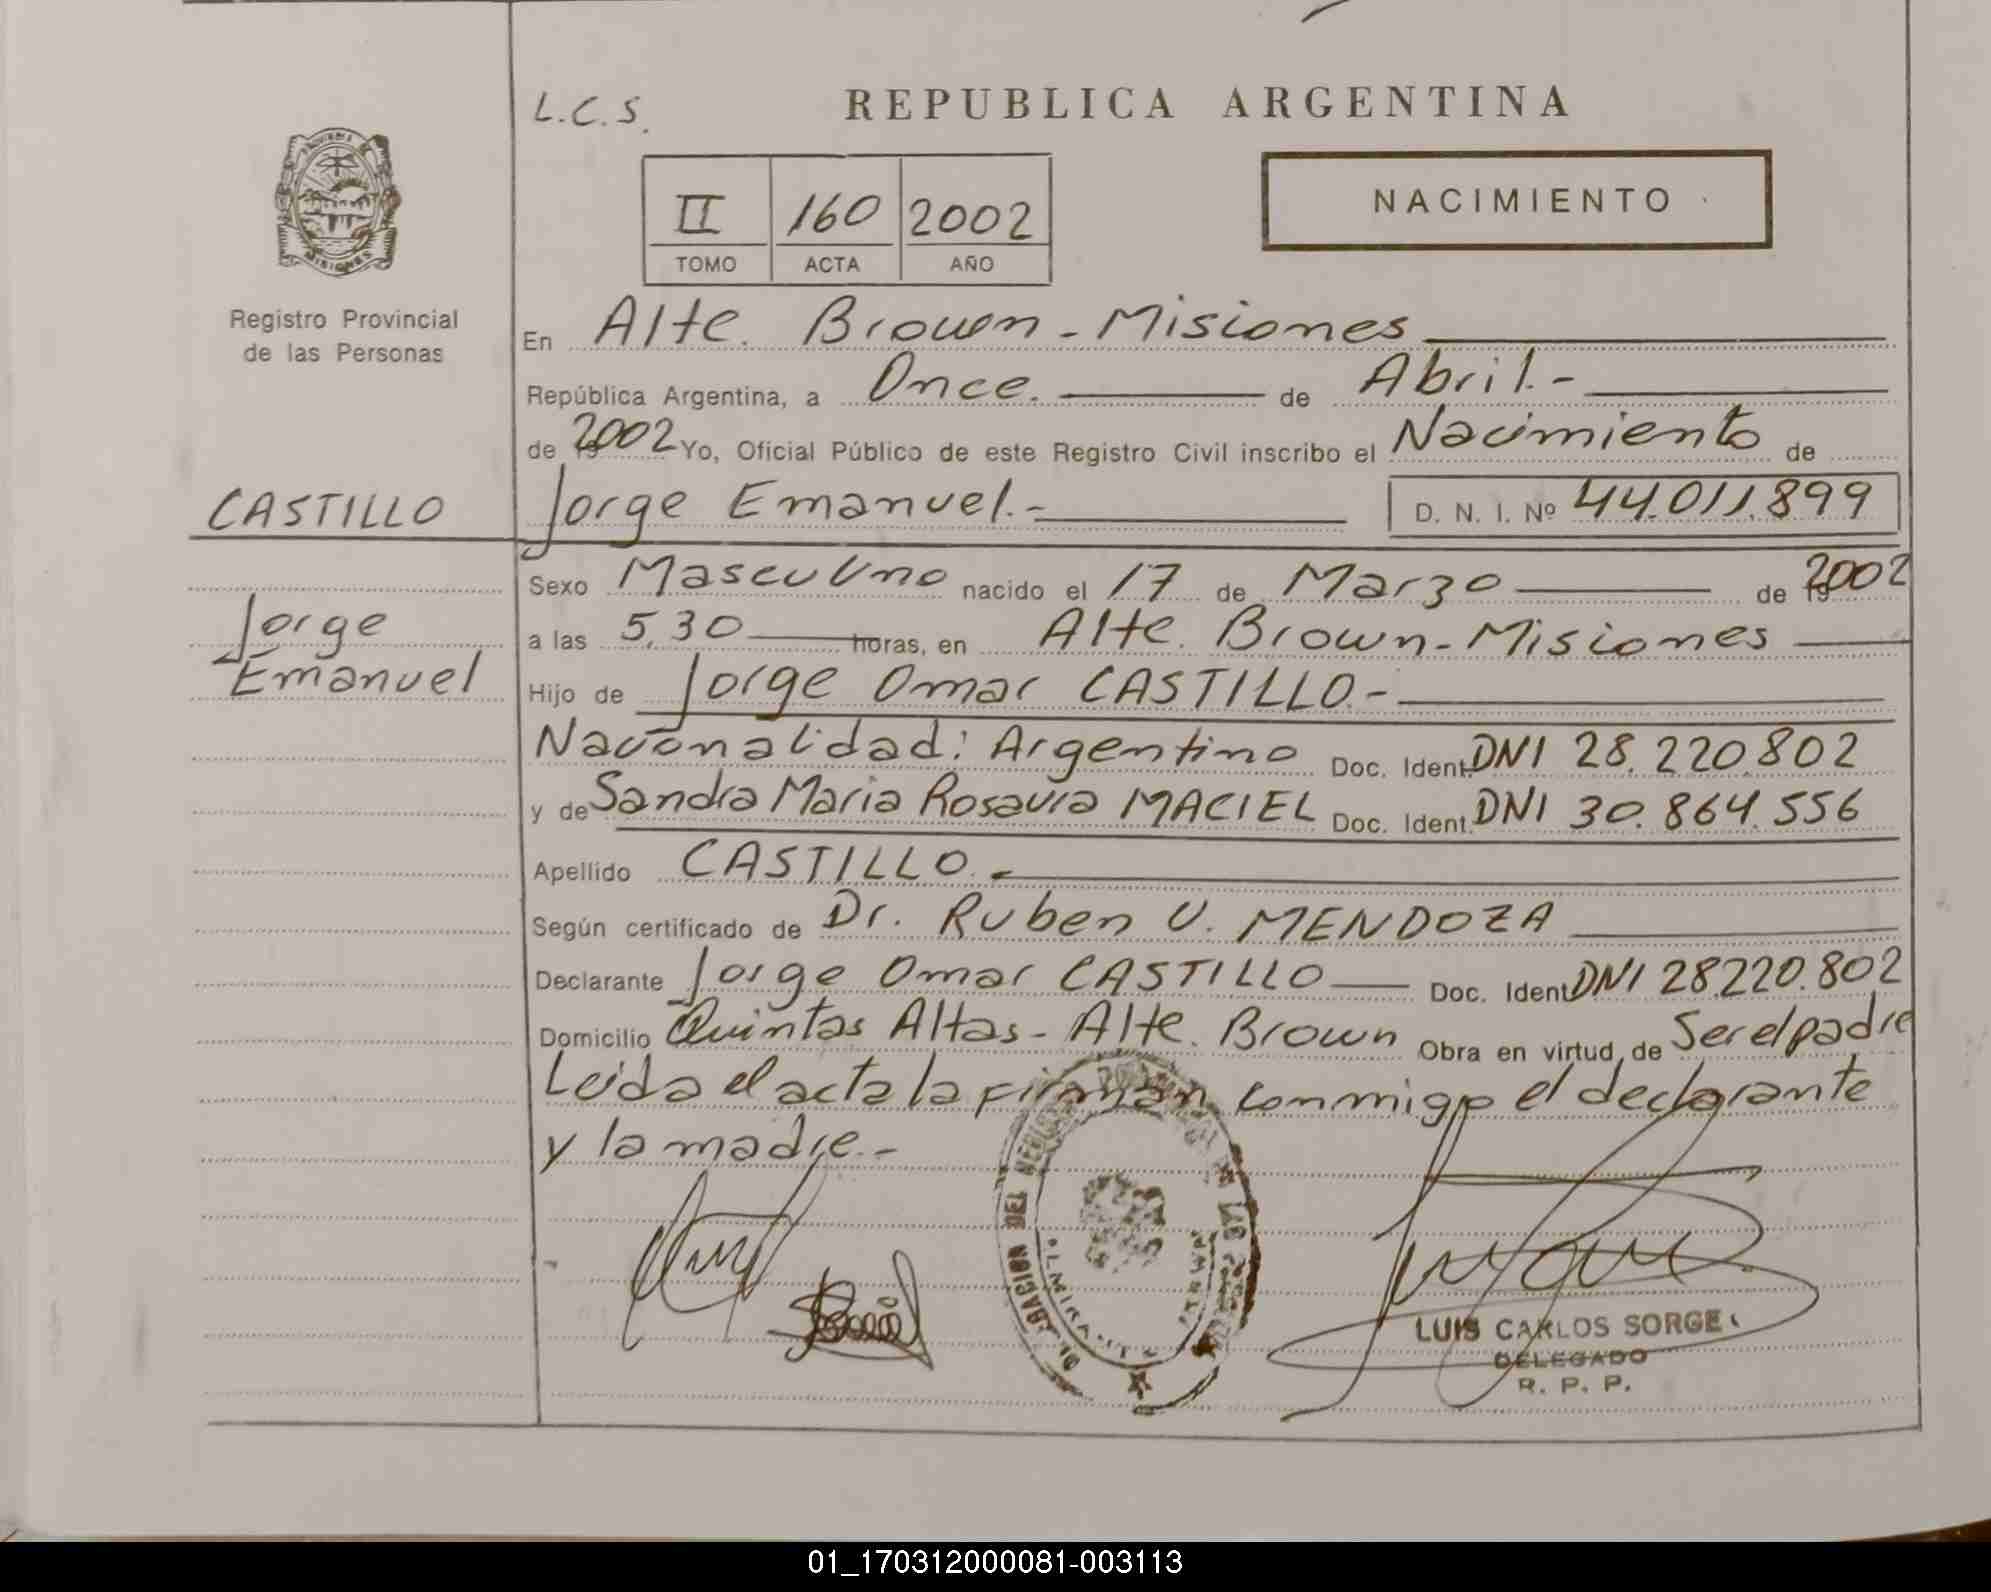 L.C.S.
REPUBLICA ARGENTINA
II 160 2002
TOMO ACTA AÑO
NACIMIENTO
MISIONES
Registro Provincial
de las Personas
En Alte. Brown - Misiones
República Argentina, a Once. de Abril.-
de 2002 Yo, Oficial Público de este Registro Civil inscribo el Nacimiento de
CASTILLO Jorge Emanuel.- D. N. I. Nº 44.011.899
Sexo Masculino nacido el 17 de Marzo de 2002
Jorge
a las 5,30 horas, en Alte. Brown - Misiones
Emanuel
Hijo de Jorge Omar CASTILLO.-
Nacionalidad: Argentino Doc. Ident. DNI 28.220.802
y de Sandra Maria Rosaura MACIEL Doc. Ident. DNI 30.864.556
Apellido CASTILLO.-
Según certificado de Dr. Ruben U. MENDOZA
Declarante Jorge Omar CASTILLO Doc. Ident. DNI 28.220.802
Domicilio Quintas Altas - Alte. Brown Obra en virtud de Ser el padre
Leida el acta la firman conmigo el declarante
y la madre.-
DEL
LUIS CARLOS SORGE
DELEGADO
R. P. P.
01_170312000081-003113